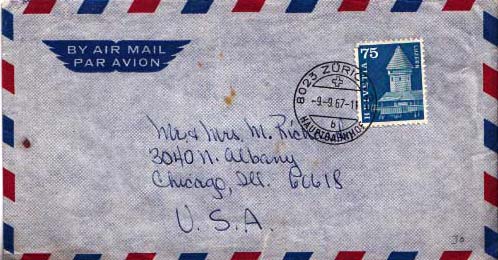 BY AIR MAIL
PAR AVION
75
HELVETIA
LUZERN
8023 ZÜRICH
-9-9.67-11
b
HAUPTBAHNHOF
Mr. & Mrs. M.
3040 N. Albany
Chicago, Ill. 60618
U.S.A.
30